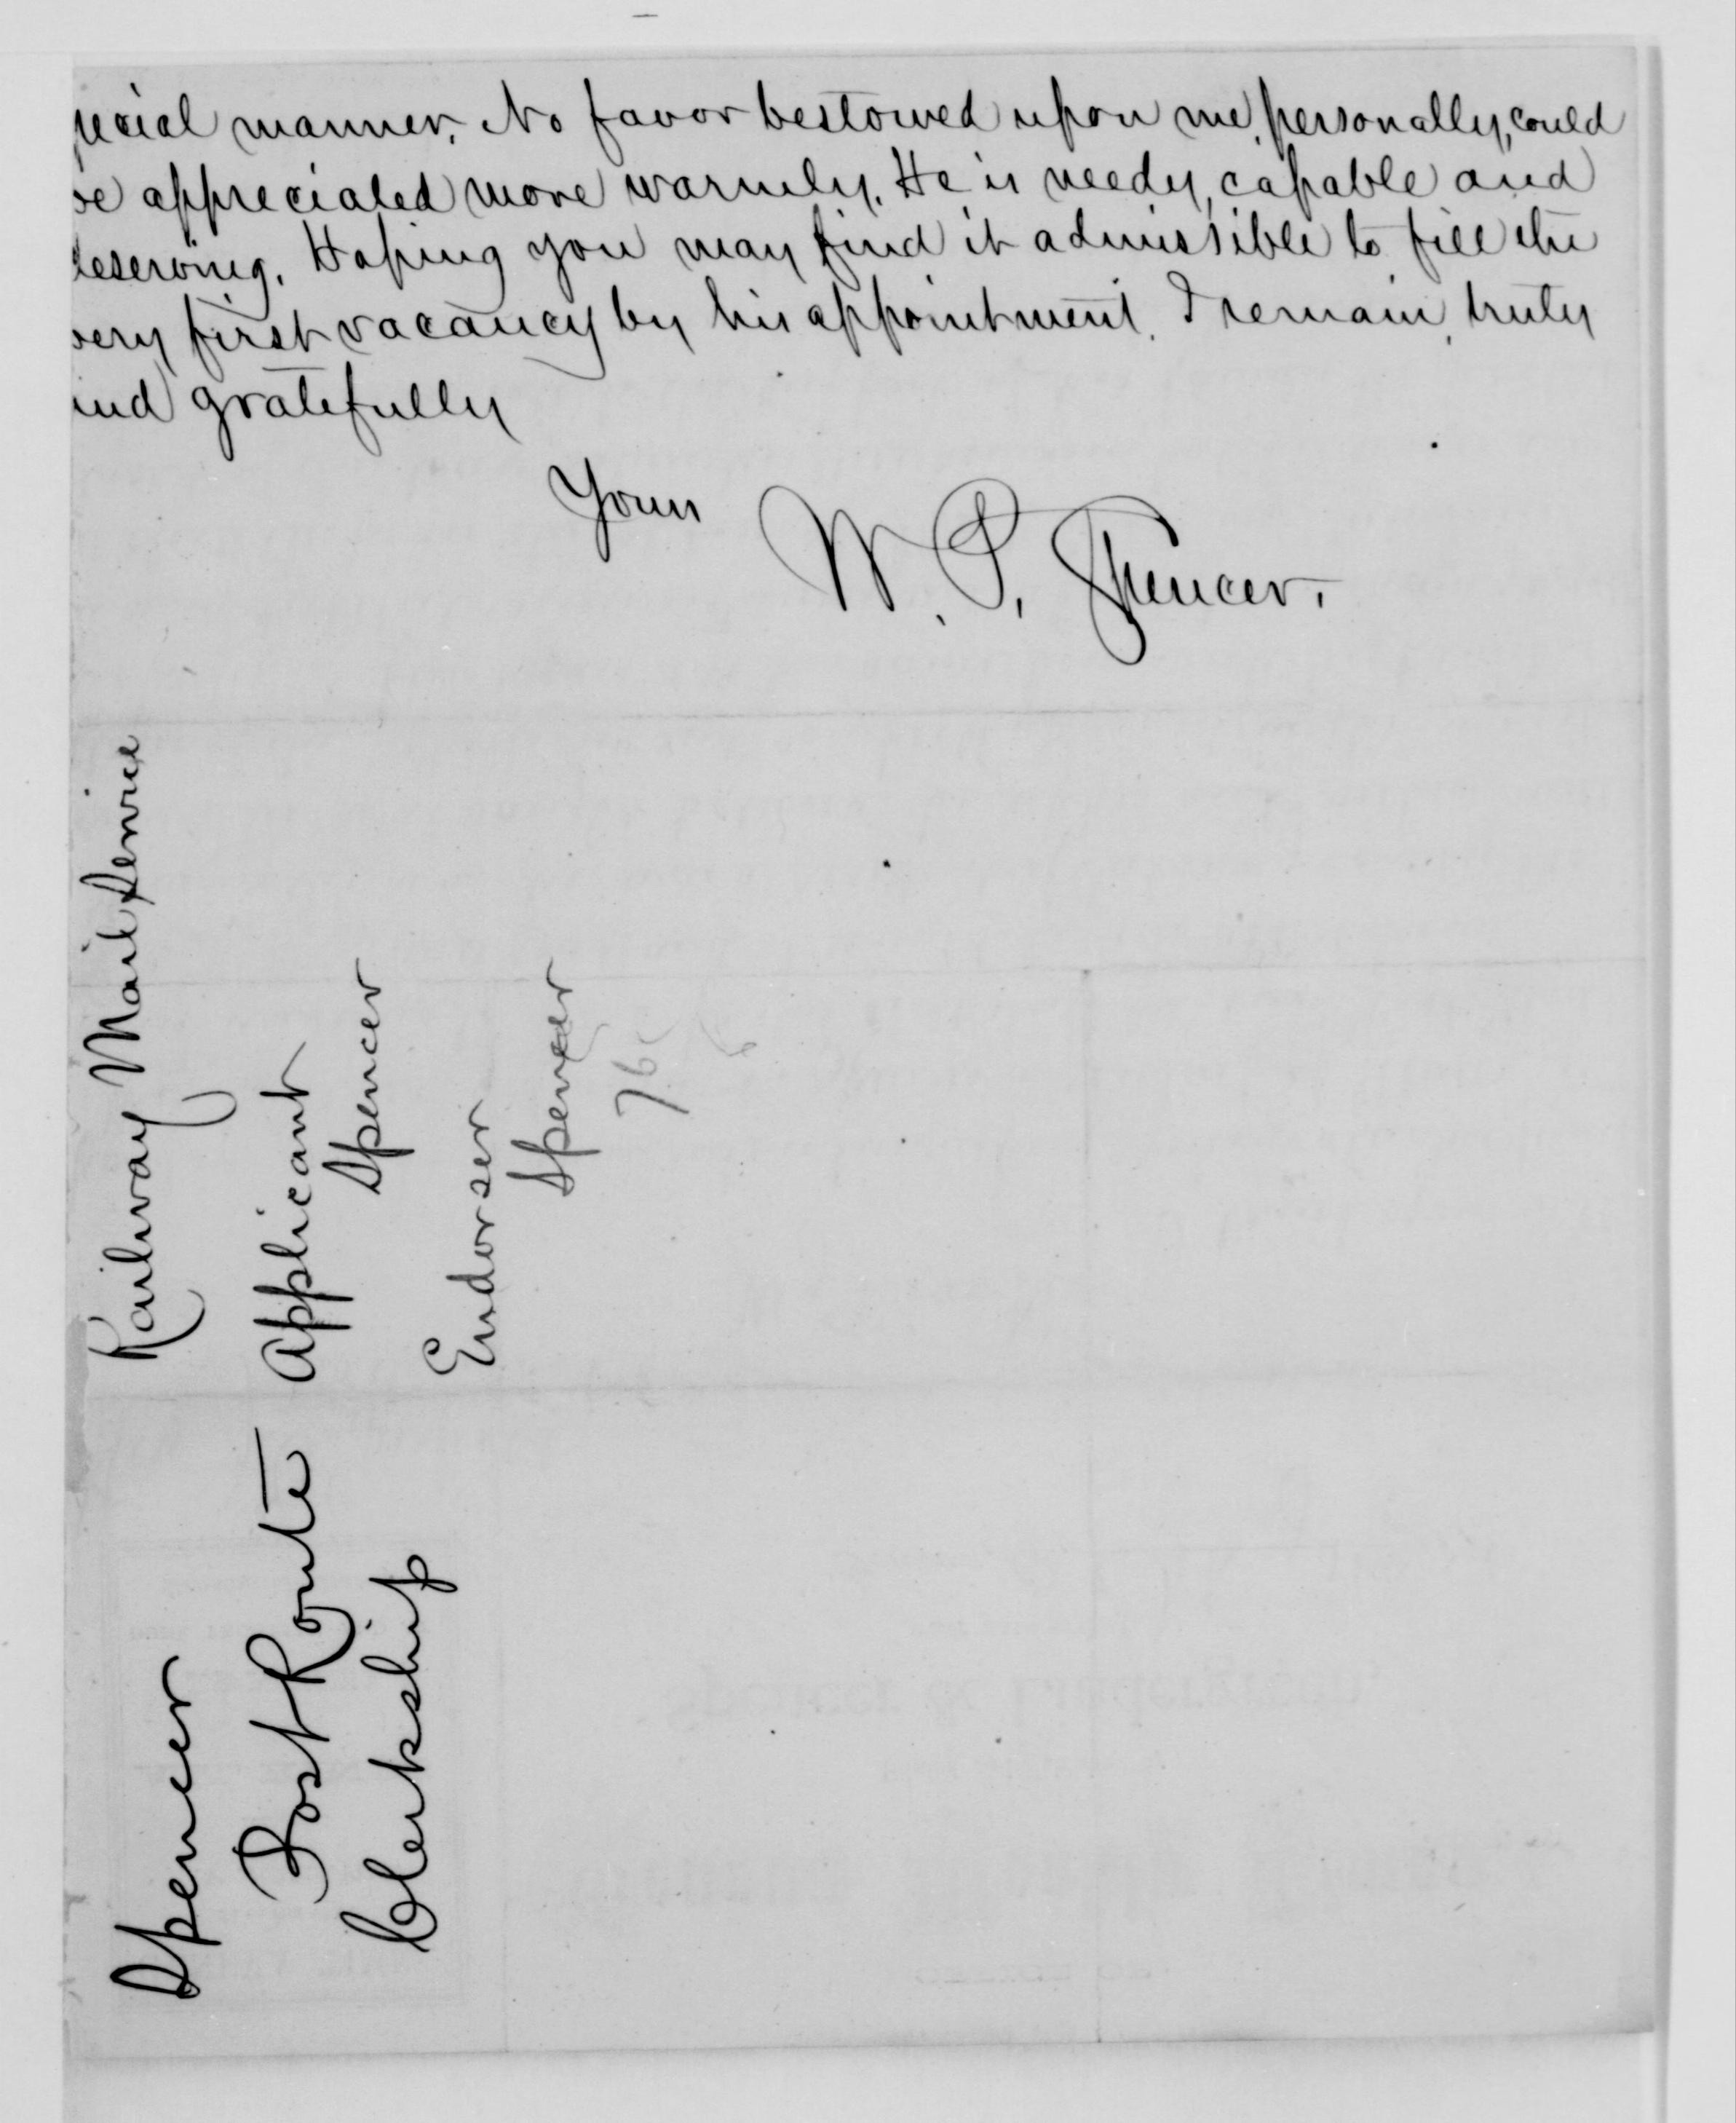 pecial manner. No favor bestowed upon me, personally, could
be appreciated more warmly. He is needy, capable and
deserving. Hoping you may find it admissible to fill the
very first vacancy by his appointment. I remain, truly
and gratefully
Yours W. P. Spencer.
Railway Mail Service
Applicant
Spencer
Endorser
Spencer
76
Spencer
Post Route
Clerkship